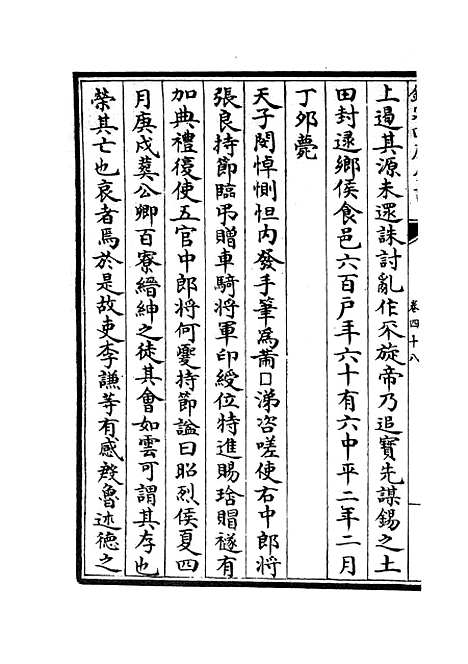 上遏其源未還誅討亂作不旋帝乃追寶先謀錫之土
田封逯鄉侯食邑六百戶年六十有六中平二年二月
丁夘薨
天子閔悼惻怛内發手筆為萳□涕咨嗟使右中郎將
張良持節臨弔贈車騎將軍印綬位特進賜琀賵襚有
加典禮復使五官中郎將何夔持節諡曰昭烈侯夏四
月庚戌葬公卿百寮縉紳之徒其會如雲可謂其存也
榮其亡也哀者焉於是故吏李謙等有感殽魯述德之
卷四十八